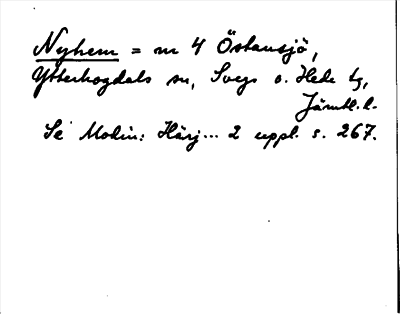 Nyhem = nr 4 Östansjö,
Ytterhogdals sn, Svegs o. Hede tg,
Jämtl. l.
Se Modin: Härj... 2 uppl. s. 267.